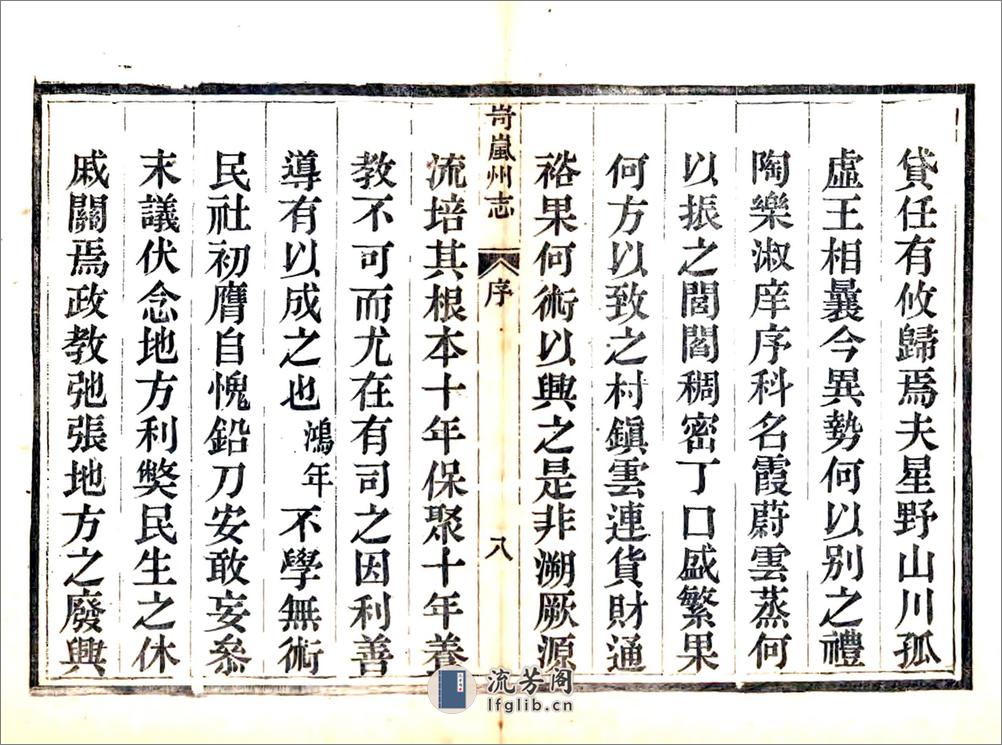 貸任有攸歸焉夫星野山川孤
虛王相曩今異勢何以別之禮
陶樂淑庠序科名霞蔚雲蒸何
以振之閭閻稠密丁口盛繁果
何方以致之村鎮雲連貨財通
裕果何術以興之是非溯厥源
岢嵐州志 序 八
流培其根本十年保聚十年養
教不可而尤在有司之因利善
導有以成之也鴻年不學無術
民社初膺自愧鉛刀安敢妄叅
末議伏念地方利獘民生之休
戚關焉政教弛張地方之廢興
流芳阁
lfglib.cn